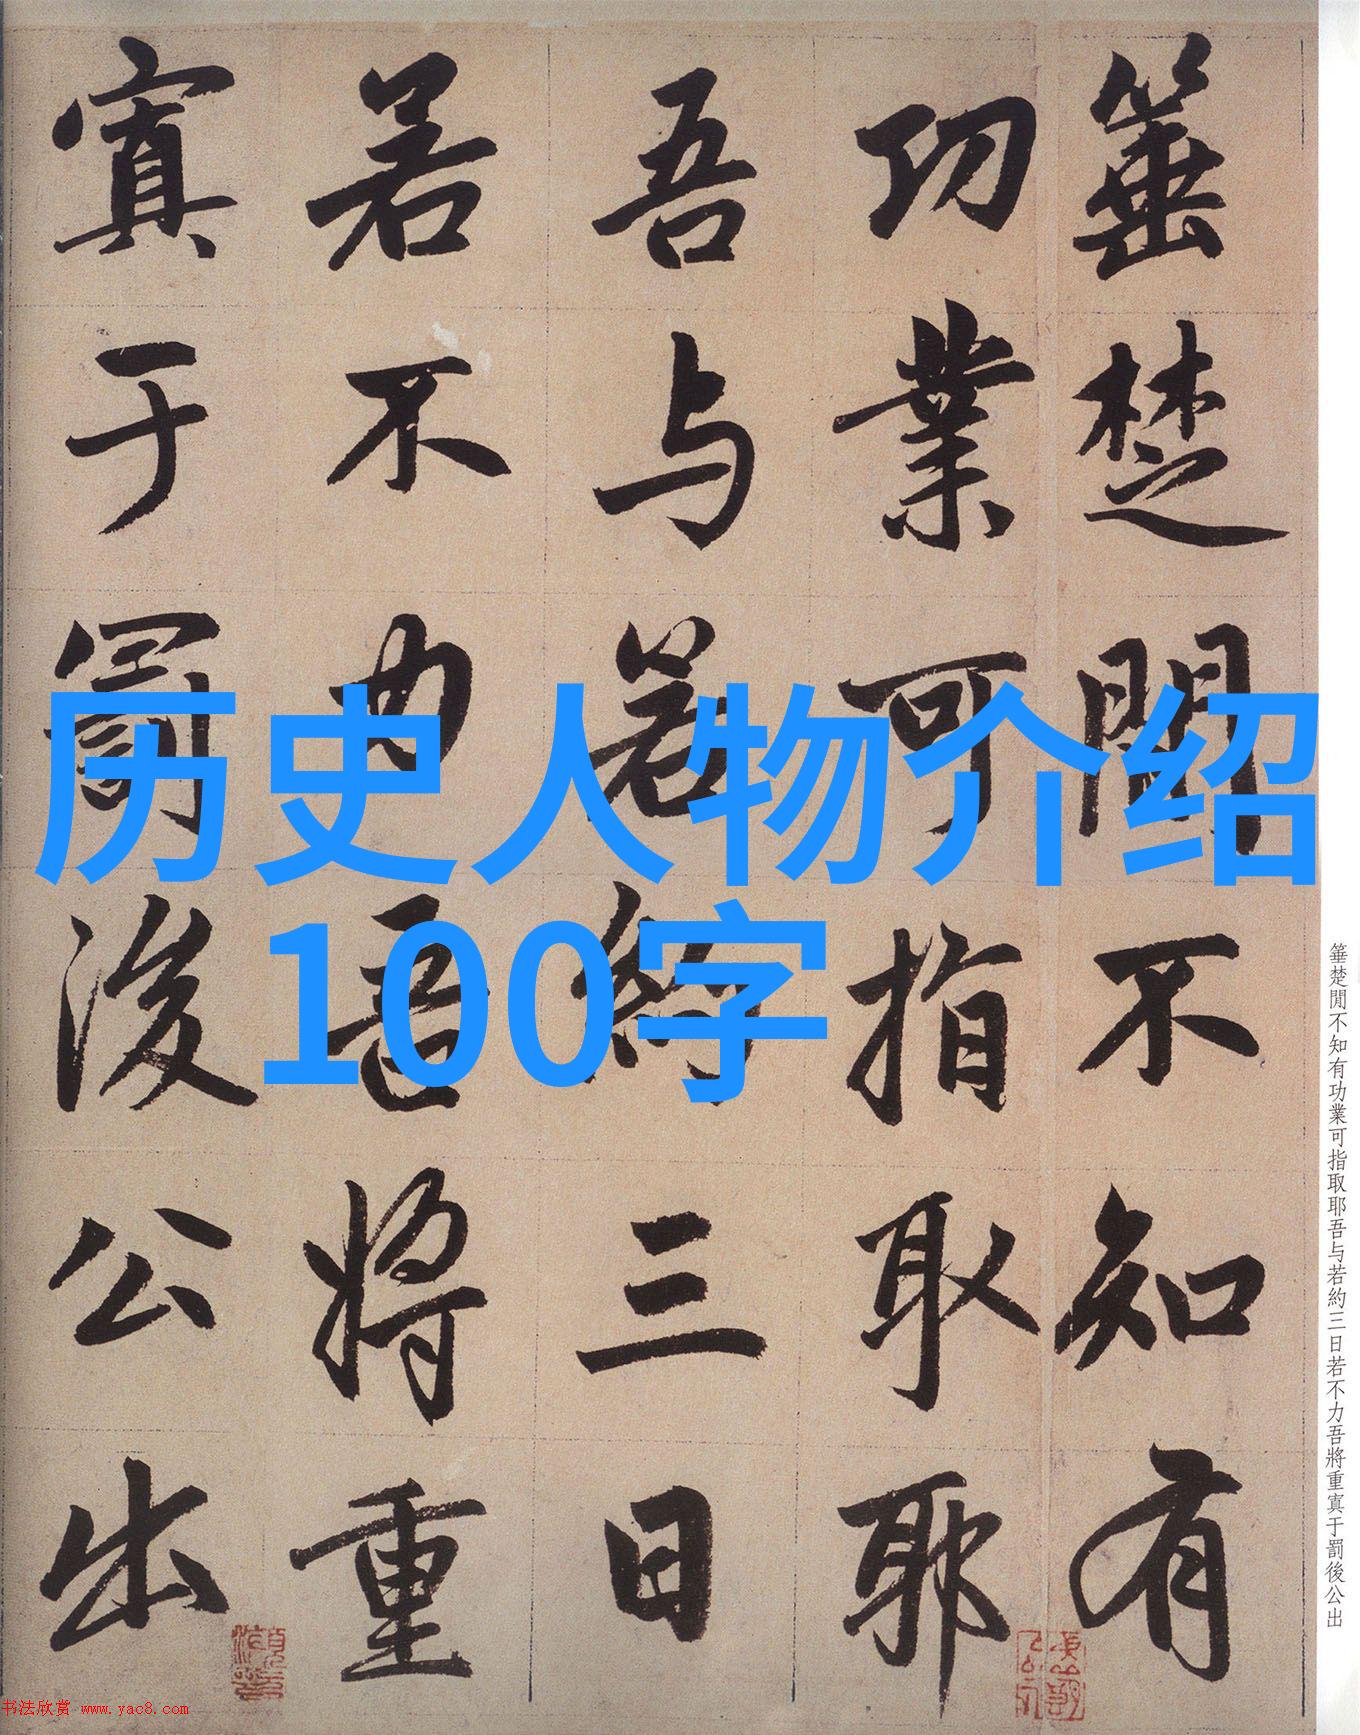 箠楚閒不知有
功業可指取耶
吾与若約三日
若不力吾將重
寘于罰後公出
历史人物介绍
100字
箠楚閒不知有功業可指取耶吾与若約三日若不力吾將重寘于罰後公出
书法欣赏 www.yac8.com